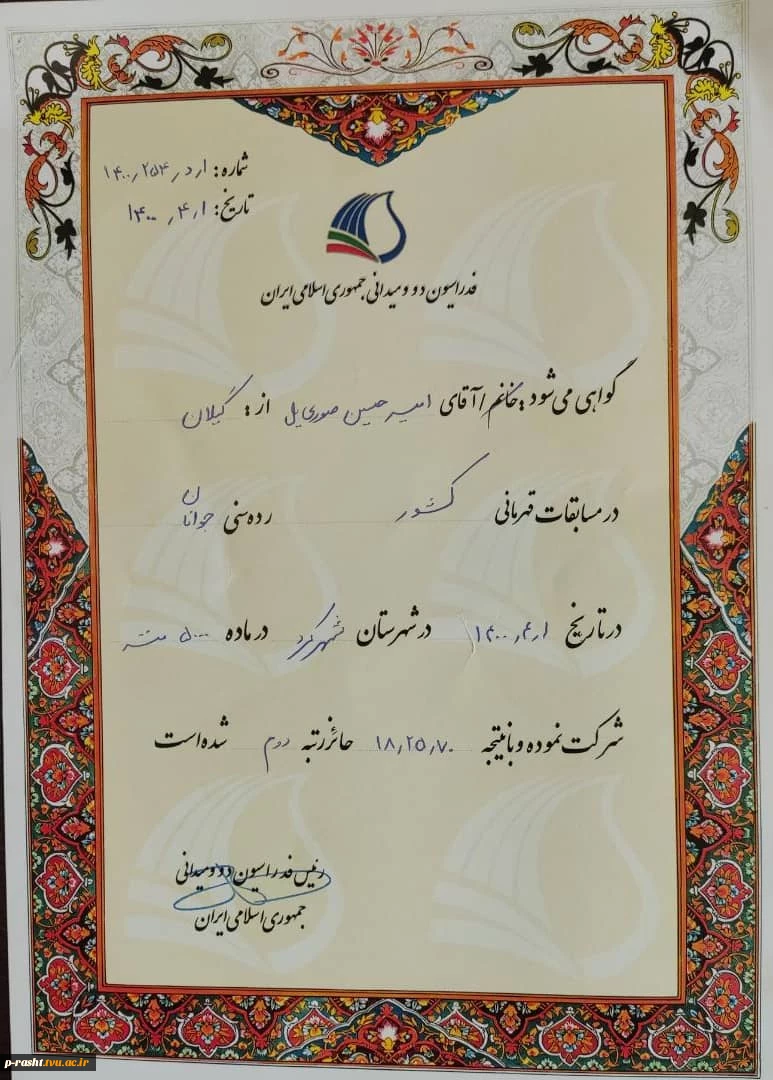 شماره: ا ر د ر ۲۵۴ ر ۱۴۰۰
تاریخ: ۱ ر ۴ ر ۱۴۰۰
فدراسیون دو و میدانی جمهوری اسلامی ایران
گواهی می شود: خانم / آقای امیر حسین صوری یل از: گیلان
در مسابقات قهرمانی کشور رده سنی جوانان
در تاریخ ۱ ر ۴ ر ۱۴۰۰ در شهرستان شهرکرد در ماده ۵۰۰۰ متر
شرکت نموده و با نتیجه ۱۸,۲۵,۷۰ حائز رتبه دوم شده است
رئیس فدراسیون دو و میدانی
جمهوری اسلامی ایران
p-rasht.tvu.ac.ir